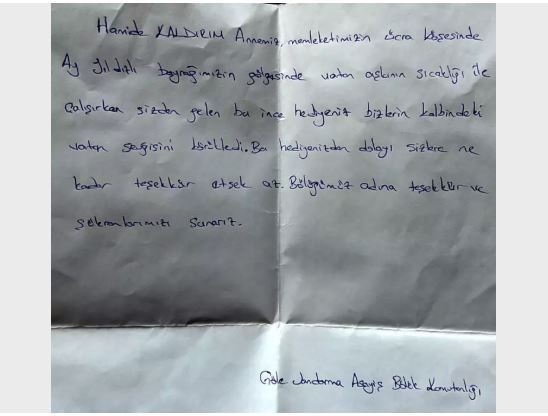 Hamide KALDIRIM Annemiz, memleketimizin ücra köşesinde
Ay Yıldızlı bayrağımızın gölgesinde vatan aşkının sıcaklığı ile
Çalışırken sizden gelen bu ince hediyeniz bizlerin kalbindeki
vatan sevgisini körükledi. Bu hediyenizden dolayı sizlere ne
kadar teşekkür etsek az. Bölüğümüz adına teşekkür ve
şükranlarımızı sunarız.
Göle Jandarma Asayiş Bölük Komutanlığı